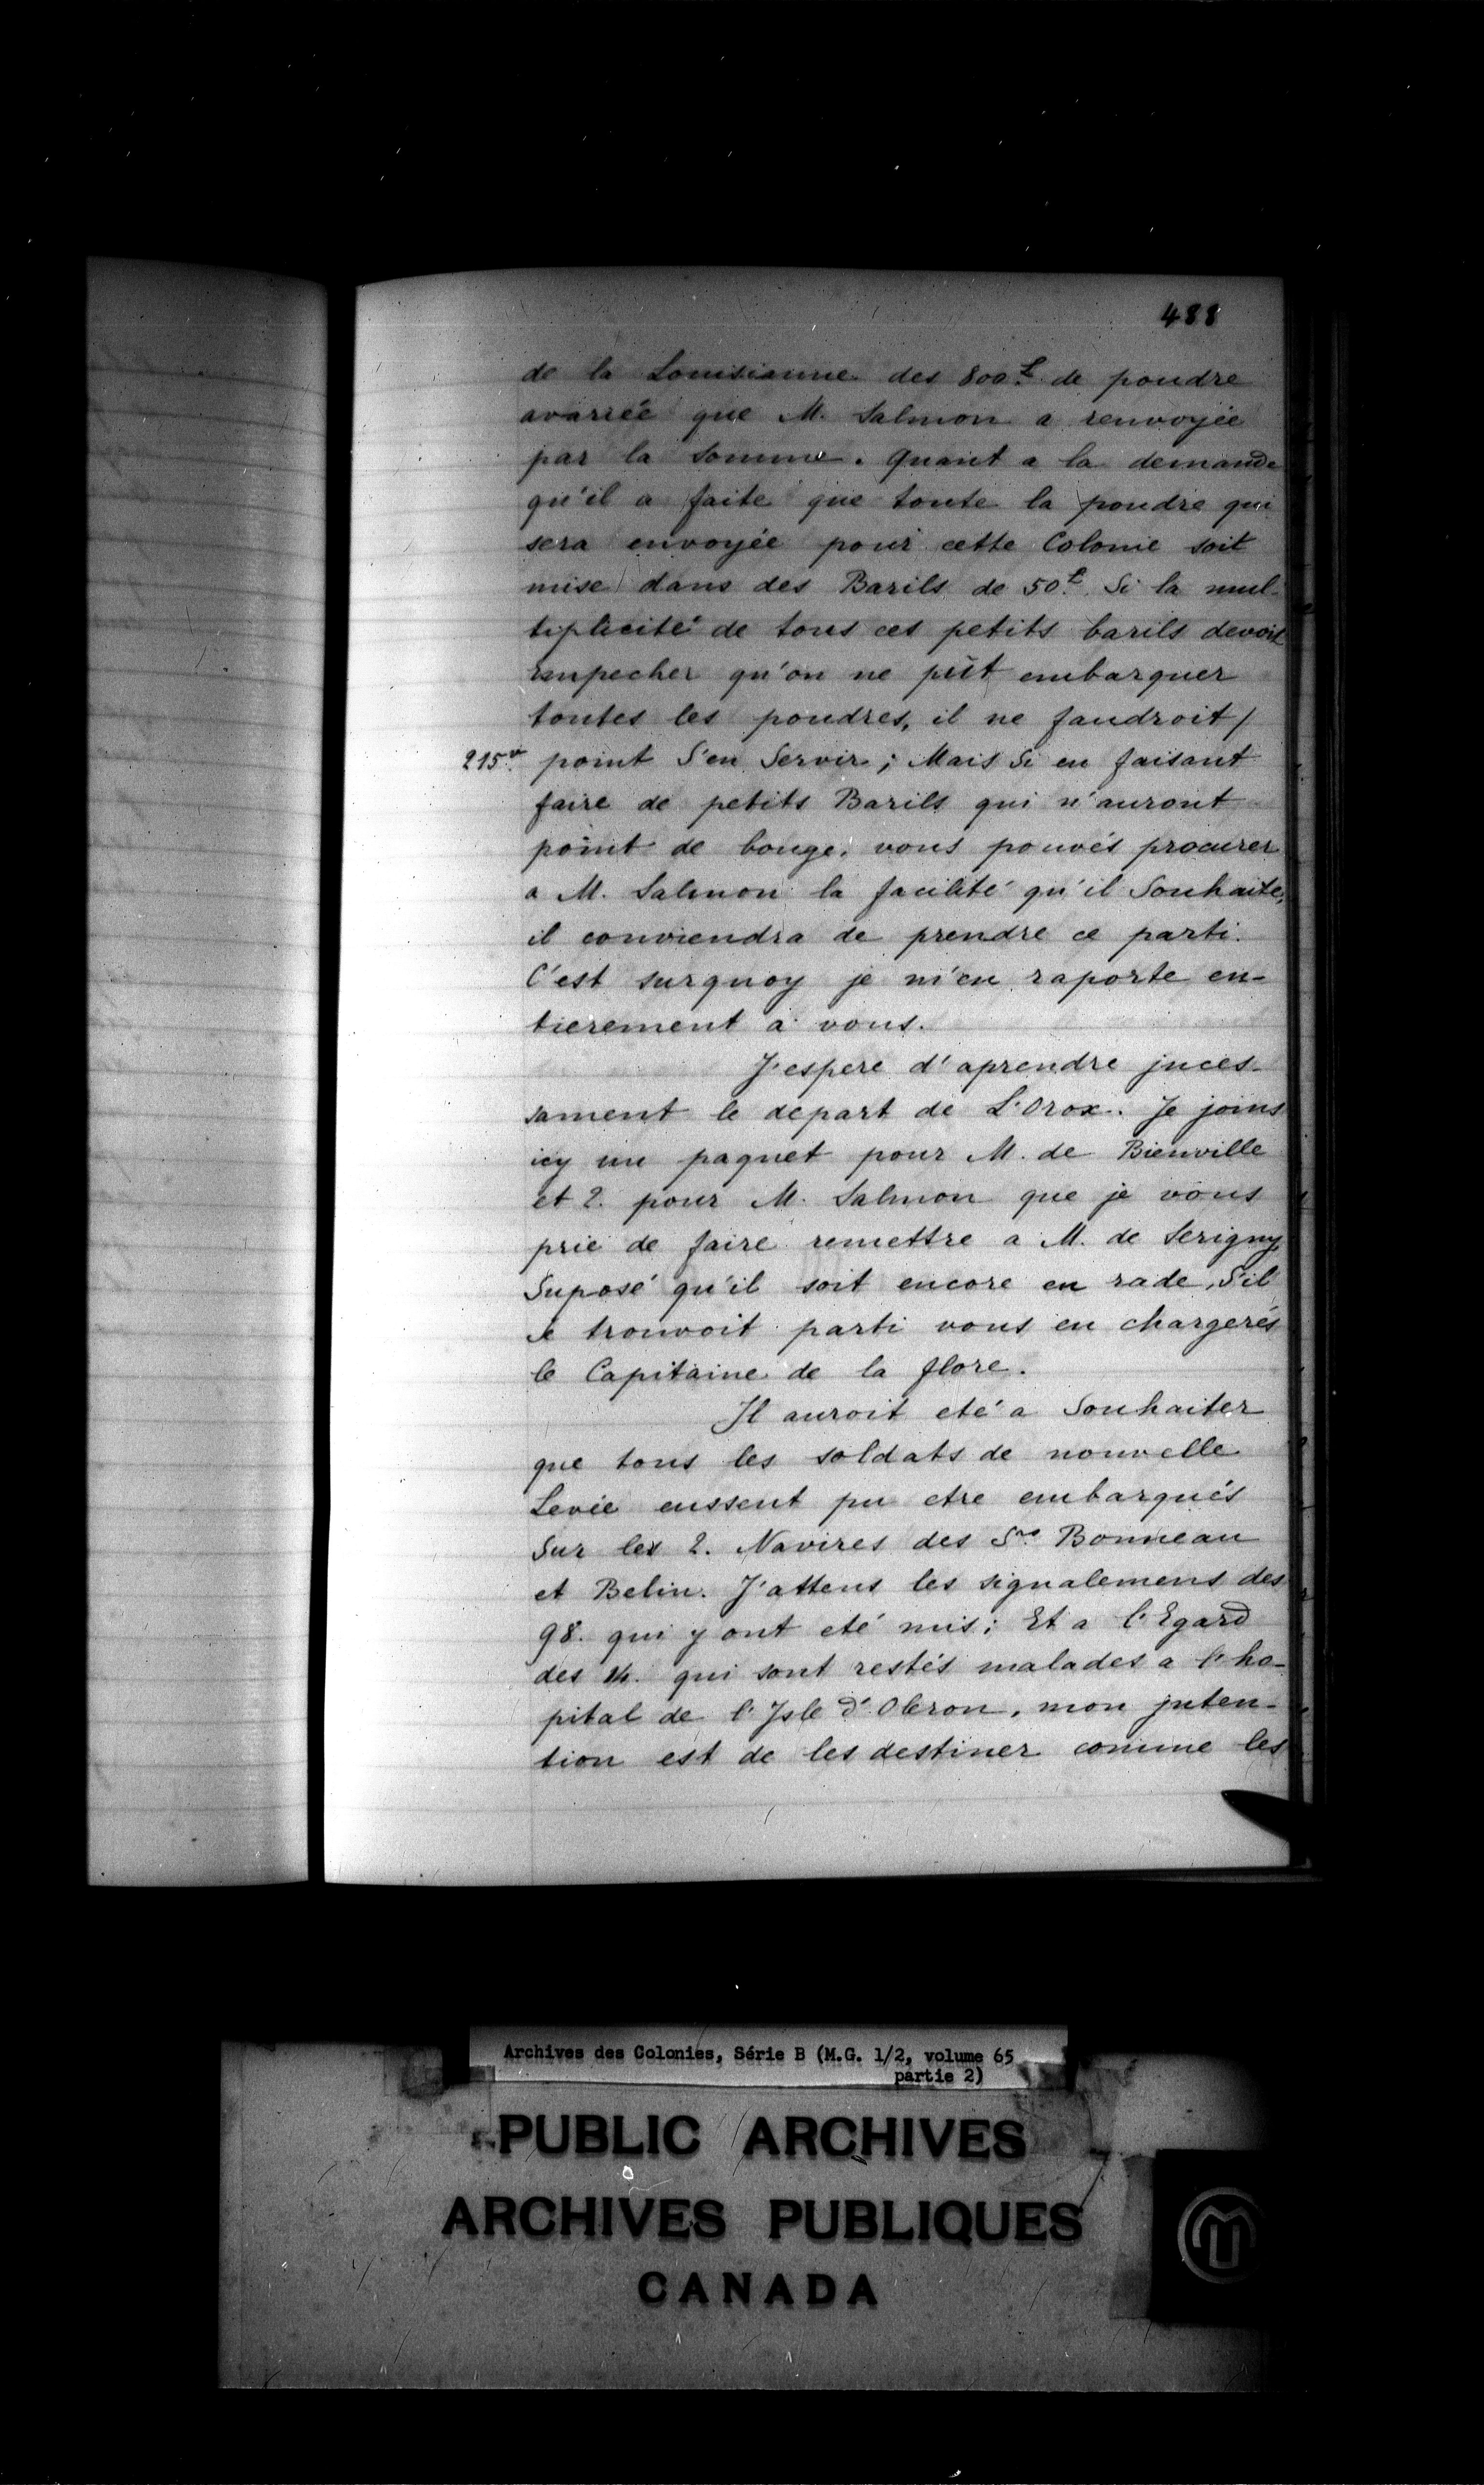 488
de la Louisianne des 800.£ de poudre
avariée que M. Salmon a renvoyée
par la Somme. Quant a la demande
qu'il a faite que toute la poudre qui
sera envoyée pour cette Colonie soit
mise dans des Barils de 50.£ Si la mul-
tiplicité de tous ces petits barils devoit
empecher qu'on ne pût embarquer
toutes les poudres, il ne faudroit /
215.v point S'en Servir; Mais Si en faisant
faire de petits Barils qui n'auront
point de bouge, vous pouvés procurer
a M. Salmon la facilité qu'il Souhaite,
il conviendra de prendre ce parti.
C'est surquoy je m'en raporte en-
tierement a vous.
J'espere d'aprendre jnces-
sament le depart de L'Orox. Je joins
icy un paquet pour M. de Bienville
et 2. pour M. Salmon que je vous
prie de faire remettre a M. de Serigny
Suposé qu'il soit encore en rade, S'il
se trouvoit parti vous en chargerés
le Capitaine de la flore.
Il auroit eté a Souhaiter
que tous les soldats de nouvelle
Levée eussent pu etre embarqués
Sur les 2. Navires des Srs Bonneau
et Belin. J'attens les signalemens des
98. qui y ont eté mis; Et a l'Egard
des 14. qui sont restés malades a l'ho-
pital de l'Jsle d'Oleron, mon jnten-
tion est de les destiner comme les
Archives des Colonies, Série B (M.G. 1/2, volume 65
partie 2)
PUBLIC ARCHIVES
ARCHIVES PUBLIQUES
CANADA